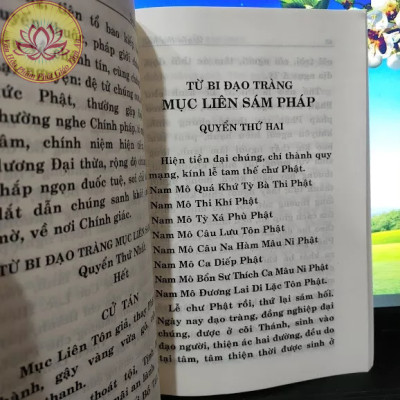 tiên tổ bao
pháp giới
tính tín, cúng
đệ tử chúng
ức Phật, thường gặp
thường nghe Chính pháp,
tâm, chính niệm hiện
ương Đại thừa, rộng độ
hắp ngọn đuốc tuệ, soi
dắt dẫn chúng sanh khỏi
mờ, về nơi Chính giác.
TỪ BI ĐẠO TRÀNG MỤC LIÊN
Quyển Thứ Nhất
Hết
CỬ TÁN
Mục Liên Tôn giả, thay
hành, gậy vàng vừa gõ,
thanh.
thoát tội,
TỪ BI ĐẠO TRÀNG
MỤC LIÊN SÁM PHÁP
QUYỂN THỨ HAI
Hiện tiền đại chúng, chí thành quy
mạng, kính lễ tam thế chư Phật.
Nam Mô Quá Khứ Tỳ Bà Thi Phật
Nam Mô Thi Khí Phật
Nam Mô Tỳ Xá Phù Phật
Nam Mô Câu Lưu Tôn Phật
Nam Mô Câu Na Hàm Mâu Ni Phật
Nam Mô Ca Diếp Phật
Nam Mô Bổn Sư Thích Ca Mâu Ni Phật
Nam Mô Đương Lai Di Lặc Tôn Phật.
Lễ chư Phật rồi, thứ lại sám hối.
Ngày nay đạo tràng, đồng nghiệp đại
chúng, được ở cõi Thánh, sinh vào
đạo người, thiện ác hai đường, đều do
tại tâm, tâm thiện thời được sinh ở